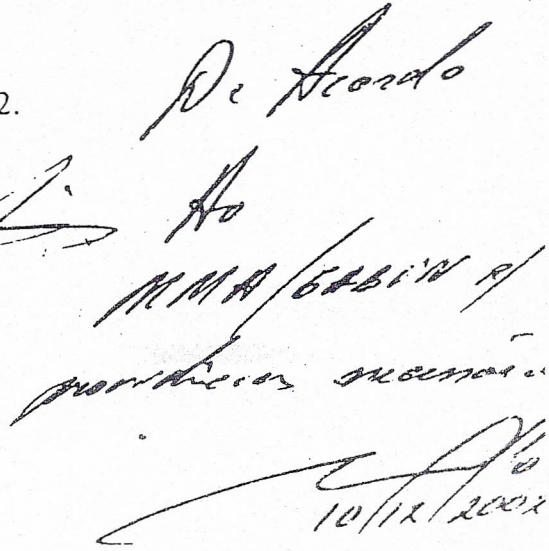 2.
De Acordo
Ao
MMA/GABIN p/
providências
10/12/2002